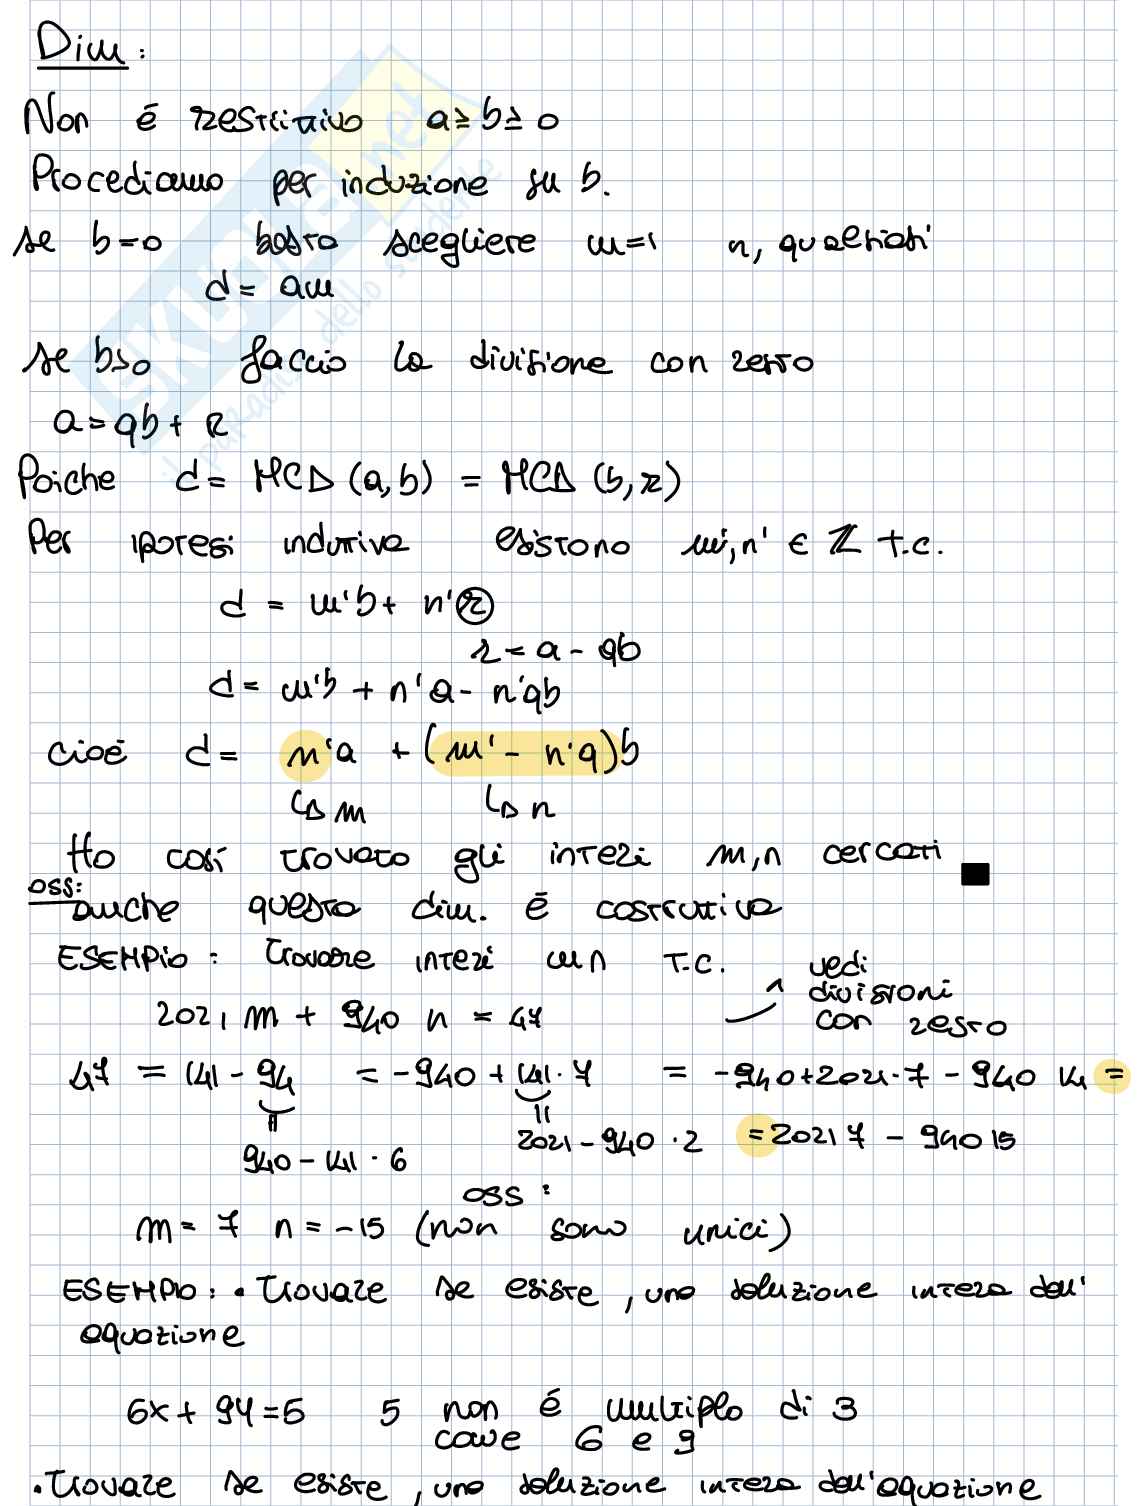 Dim:
Non é restrittivo a≥b≥0
Procediamo per induzione su b.
se b=0 basta scegliere m=1 n, qualsiasi
d= am
se b>0 faccio la divisione con resto
a=qb+ r
Poiche d= MCD (a,b) = MCD (b,r)
Per ipotesi induttiva esistono m',n' ∈ ℤ t.c.
d = m'b+ n'r
r=a-qb
d= m'b + n'a- n'qb
cioé d= n'a + (m'- n'q)b
↳ m ↳ n
Ho cosí trovato gli interi m,n cercati ■
oss:
anche questa dim. é costruttiva
ESEMPIO: trovare interi m n T.C.
vedi
divisioni
con resto
2021 m + 940 n = 47
47 = 141-94 =-940+141·7 = -940+2021·7-940 14 =
940-141·6
2021-940·2
=2021 7 - 940 15
oss:
m= 7 n=-15 (non sono unici)
ESEMPIO: • trovare se esiste, una soluzione intera dell'
equazione
6x+9y=5 5 non é multiplo di 3
come 6 e 9
• trovare se esiste, una soluzione intera dell'equazione
SKUOLA.net
il paradiso dello studente